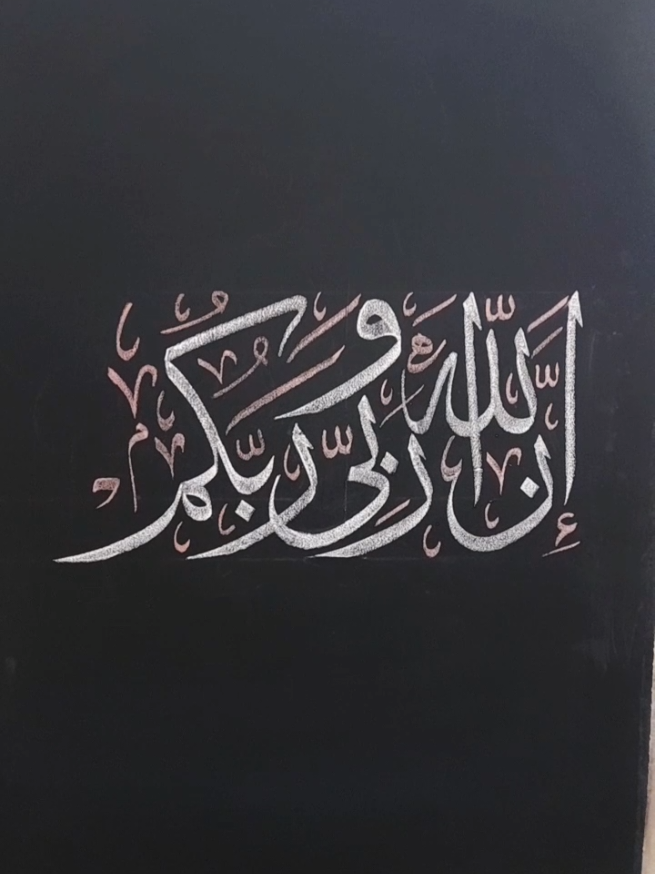 إِنَّ اللَّهَ رَبِّي وَرَبُّكُمْ